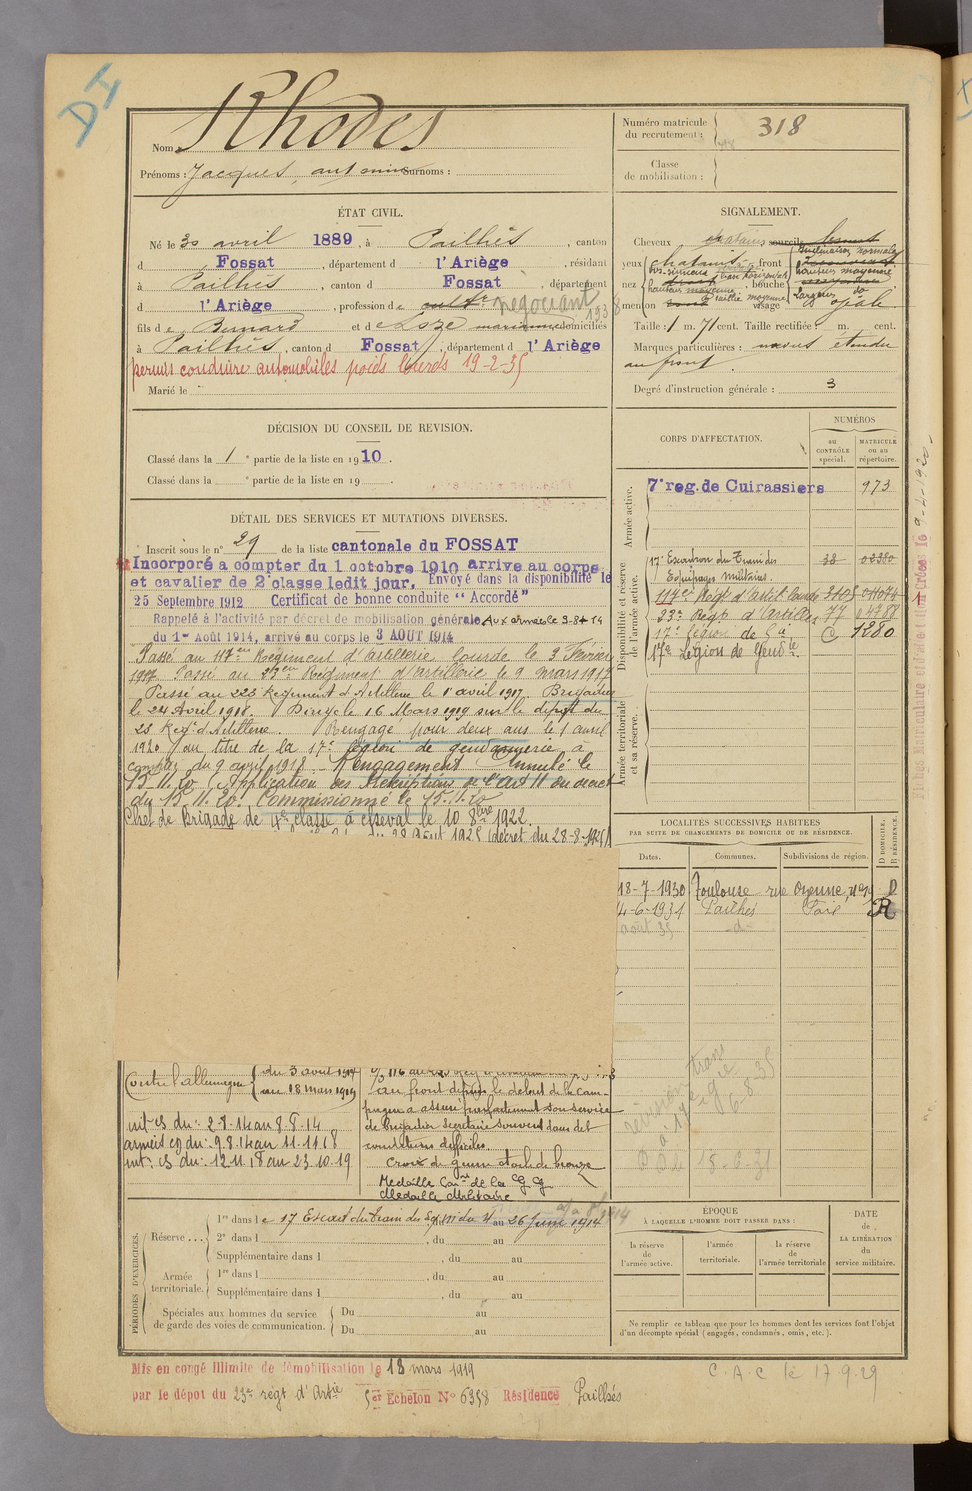 DI
Nom Rhodes
Prénoms : Jacques, antonin Surnoms :
Numéro matricule
du recrutement : 318
Classe
de mobilisation :
ÉTAT CIVIL.
Né le 30 avril 1889, à Pailhès, canton
d Fossat, département d l'Ariège, résidant
à Pailhès, canton d Fossat, département
d l'Ariège, profession de cultr négociant 1938
fils de Bernard et de domiciliés
à Pailhès, canton d Fossat, département d l'Ariège
permis conduire automobiles poids lourds 19-2-35
Marié le
SIGNALEMENT.
Cheveux chatains sourcils
yeux chatains front Inclinaison normale
hauteur moyenne
nez bouche largeur do
hauteur moyenne
menton visage ovale
Taille : 1 m. 71 cent. Taille rectifiée : m. cent.
Marques particulières : noevus étendu
au front.
Degré d'instruction générale : 3
DÉCISION DU CONSEIL DE REVISION.
Classé dans la 1 e partie de la liste en 1910.
Classé dans la e partie de la liste en 19 .
DÉTAIL DES SERVICES ET MUTATIONS DIVERSES.
Inscrit sous le n° 29 de la liste cantonale du FOSSAT
Incorporé a compter du 1 octobre 1910 arrive au corps
et cavalier de 2e classe ledit jour. Envoyé dans la disponibilité le
25 Septembre 1912 Certificat de bonne conduite "Accordé"
Rappelé à l'activité par décret de mobilisation générale Aux armées le 9-8-14
du 1er Août 1914, arrivé au corps le 3 AOUT 1914
Passé au 117eme Régiment d'artillerie lourde le 3 Février
1917 Passé au 23eme Régiment d'artillerie le 9 mars 1917
Passé au 223 Régiment d'Artillerie le 1er avril 1917. Brigadier
le 24 Avril 1918. Dirigé le 16 Mars 1919 sur le dépôt du
23 Régt d'Artillerie. Rengagé pour deux ans le 1 avril
1920 au titre de la 17e légion de gendarmerie à
compter du 9 avril 1918. Rengagement Annulé le
15.11.20 (Application des Prescriptions de l'art 11 du décret
du 15.11.20. Commissionné le 15.11.20
Chef de Brigade de 4e classe à cheval le 10 8bre 1922.
du 28 Août 1925 (décret du 28-8-1925)
CORPS D'AFFECTATION.
NUMÉROS
au
CONTRÔLE
spécial.
MATRICULE
ou au
répertoire.
Armée active.
7e reg. de Cuirassiers 973
Disponibilité et réserve
de l'armée active.
17e Escadron du Train des 38 02380
Equipages militaires.
117me Régt d'artil. lourde
23e Régt d'Artillerie 77 04788
17e Légion de Gie C 1280
17e Légion de Gendie.
Armée territoriale
et sa réserve.
LOCALITÉS SUCCESSIVES HABITÉES
PAR SUITE DE CHANGEMENTS DE DOMICILE OU DE RÉSIDENCE.
Dates. Communes. Subdivisions de région. D DOMICILE. R RÉSIDENCE.
18-7-1930 Toulouse D
4-6-1931 Pailhès Foix R
août 35 -d-
6-8-35
15-6-31
Contre l'allemagne du 3 avril 1914
au 18 mars 1919
int. es du : 2-8-14 au 8-8-14
armées eg du : 9.8.14 au 11-11-18
int. es du : 12-11-18 au 23-10-19
au front depuis le début de la cam-
pagne a assuré parfaitement son service
de brigadier secrétaire souvent dans des
conditions difficiles.
Croix de guerre étoile de bronze
Médaille Comve de la G.G.
Médaille Militaire
PÉRIODES D'EXERCICES.
Réserve ... 1re dans le 17 Escad. du Train des Eq. mil du 11 au 26 Juin 1914
2e dans l , du au
Supplémentaire dans l , du au
Armée
territoriale. 1re dans l , du au
Supplémentaire dans l , du au
Spéciales aux hommes du service
de garde des voies de communication. Du au
Du au
ÉPOQUE
À LAQUELLE L'HOMME DOIT PASSER DANS :
la réserve
de
l'armée active.
l'armée
territoriale.
la réserve
de
l'armée territoriale
DATE
de
LA LIBÉRATION
du
service militaire.
Ne remplir ce tableau que pour les hommes dont les services font l'objet
d'un décompte spécial (engagés, condamnés, omis, etc.).
Mis en congé illimité de démobilisation le 18 mars 1919
par le dépôt du 23e regt d'Artie 5er Echelon N° 6358 Résidence Pailhès
C.A.C le 17.9.29